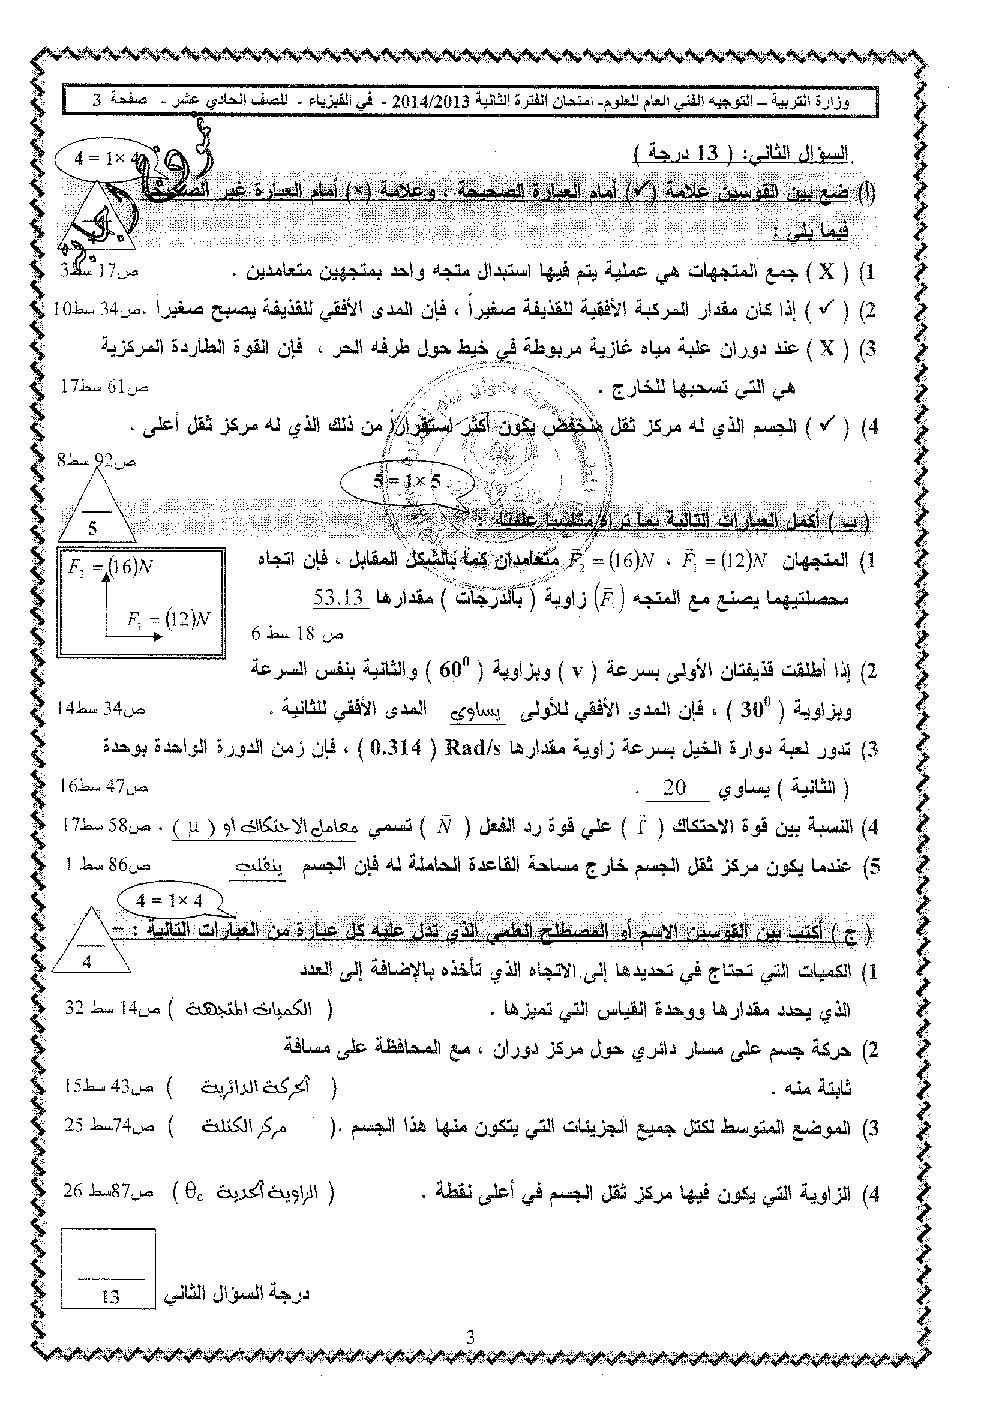 وزارة التربية – التوجيه الفني العام للعلوم- امتحان الفترة الثانية 2014/2013 - في الفيزياء - للصف الحادي عشر - صفحة 3
السؤال الثاني: ( 13 درجة )
4 = 1× 4
(أ) ضع بين القوسين علامة (✓) أمام العبارة الصحيحة ، وعلامة (×) أمام العبارة غير الصحيحة
فيما يلي :
1) ( X ) جمع المتجهات هي عملية يتم فيها استبدال متجه واحد بمتجهين متعامدين . ص17 سط3
2) ( ✓ ) إذا كان مقدار المركبة الأفقية للقذيفة صغيراً ، فإن المدى الأفقي للقذيفة يصبح صغيراً . ص34 سط10
3) ( X ) عند دوران علبة مياه غازية مربوطة في خيط حول طرفه الحر ، فإن القوة الطاردة المركزية
هي التي تسحبها للخارج . ص61 سط17
4) ( ✓ ) الجسم الذي له مركز ثقل منخفض يكون أكثر استقراراً من ذلك الذي له مركز ثقل أعلى .
ص92 سط8
5 = 1× 5
5
( ب ) أكمل العبارات التالية بما تراه مناسباً علمياً :
1) المتجهان F₁ = (12)N ، F₂ = (16)N متعامدان كما بالشكل المقابل ، فإن اتجاه
F₂ = (16)N
محصلتيهما يصنع مع المتجه (F₁) زاوية ( بالدرجات ) مقدارها 53.13
F₁ = (12)N
ص 18 سط 6
2) إذا أطلقت قذيفتان الأولى بسرعة ( v ) وبزاوية ( 60⁰ ) والثانية بنفس السرعة
وبزاوية ( 30⁰ ) ، فإن المدى الأفقي للأولى يساوي المدى الأفقي للثانية . ص34 سط14
3) تدور لعبة دوارة الخيل بسرعة زاوية مقدارها Rad/s ( 0.314 ) ، فإن زمن الدورة الواحدة بوحدة
( الثانية ) يساوي 20 . ص47 سط16
4) النسبة بين قوة الاحتكاك ( f ) علي قوة رد الفعل ( N ) تسمي معامل الاحتكاك او ( μ ) . ص58 سط17
5) عندما يكون مركز ثقل الجسم خارج مساحة القاعدة الحاملة له فإن الجسم ينقلب ص86 سط 1
4 = 1× 4
4
( ج ) أكتب بين القوسين الاسم أو المصطلح العلمي الذي تدل عليه كل عبارة من العبارات التالية : –
1) الكميات التي تحتاج في تحديدها إلى الاتجاه الذي تأخذه بالإضافة إلى العدد
الذي يحدد مقدارها ووحدة القياس التي تميزها . ( الكميات المتجهة ) ص14 سط 32
2) حركة جسم على مسار دائري حول مركز دوران ، مع المحافظة على مسافة
ثابتة منه . ( الحركة الدائرية ) ص43 سط15
3) الموضع المتوسط لكتل جميع الجزيئات التي يتكون منها هذا الجسم .( مركز الكتلة ) ص74سط 25
4) الزاوية التي يكون فيها مركز ثقل الجسم في أعلى نقطة . ( الزاوية الحدية θc ) ص87سط 26
درجة السؤال الثاني
13
3